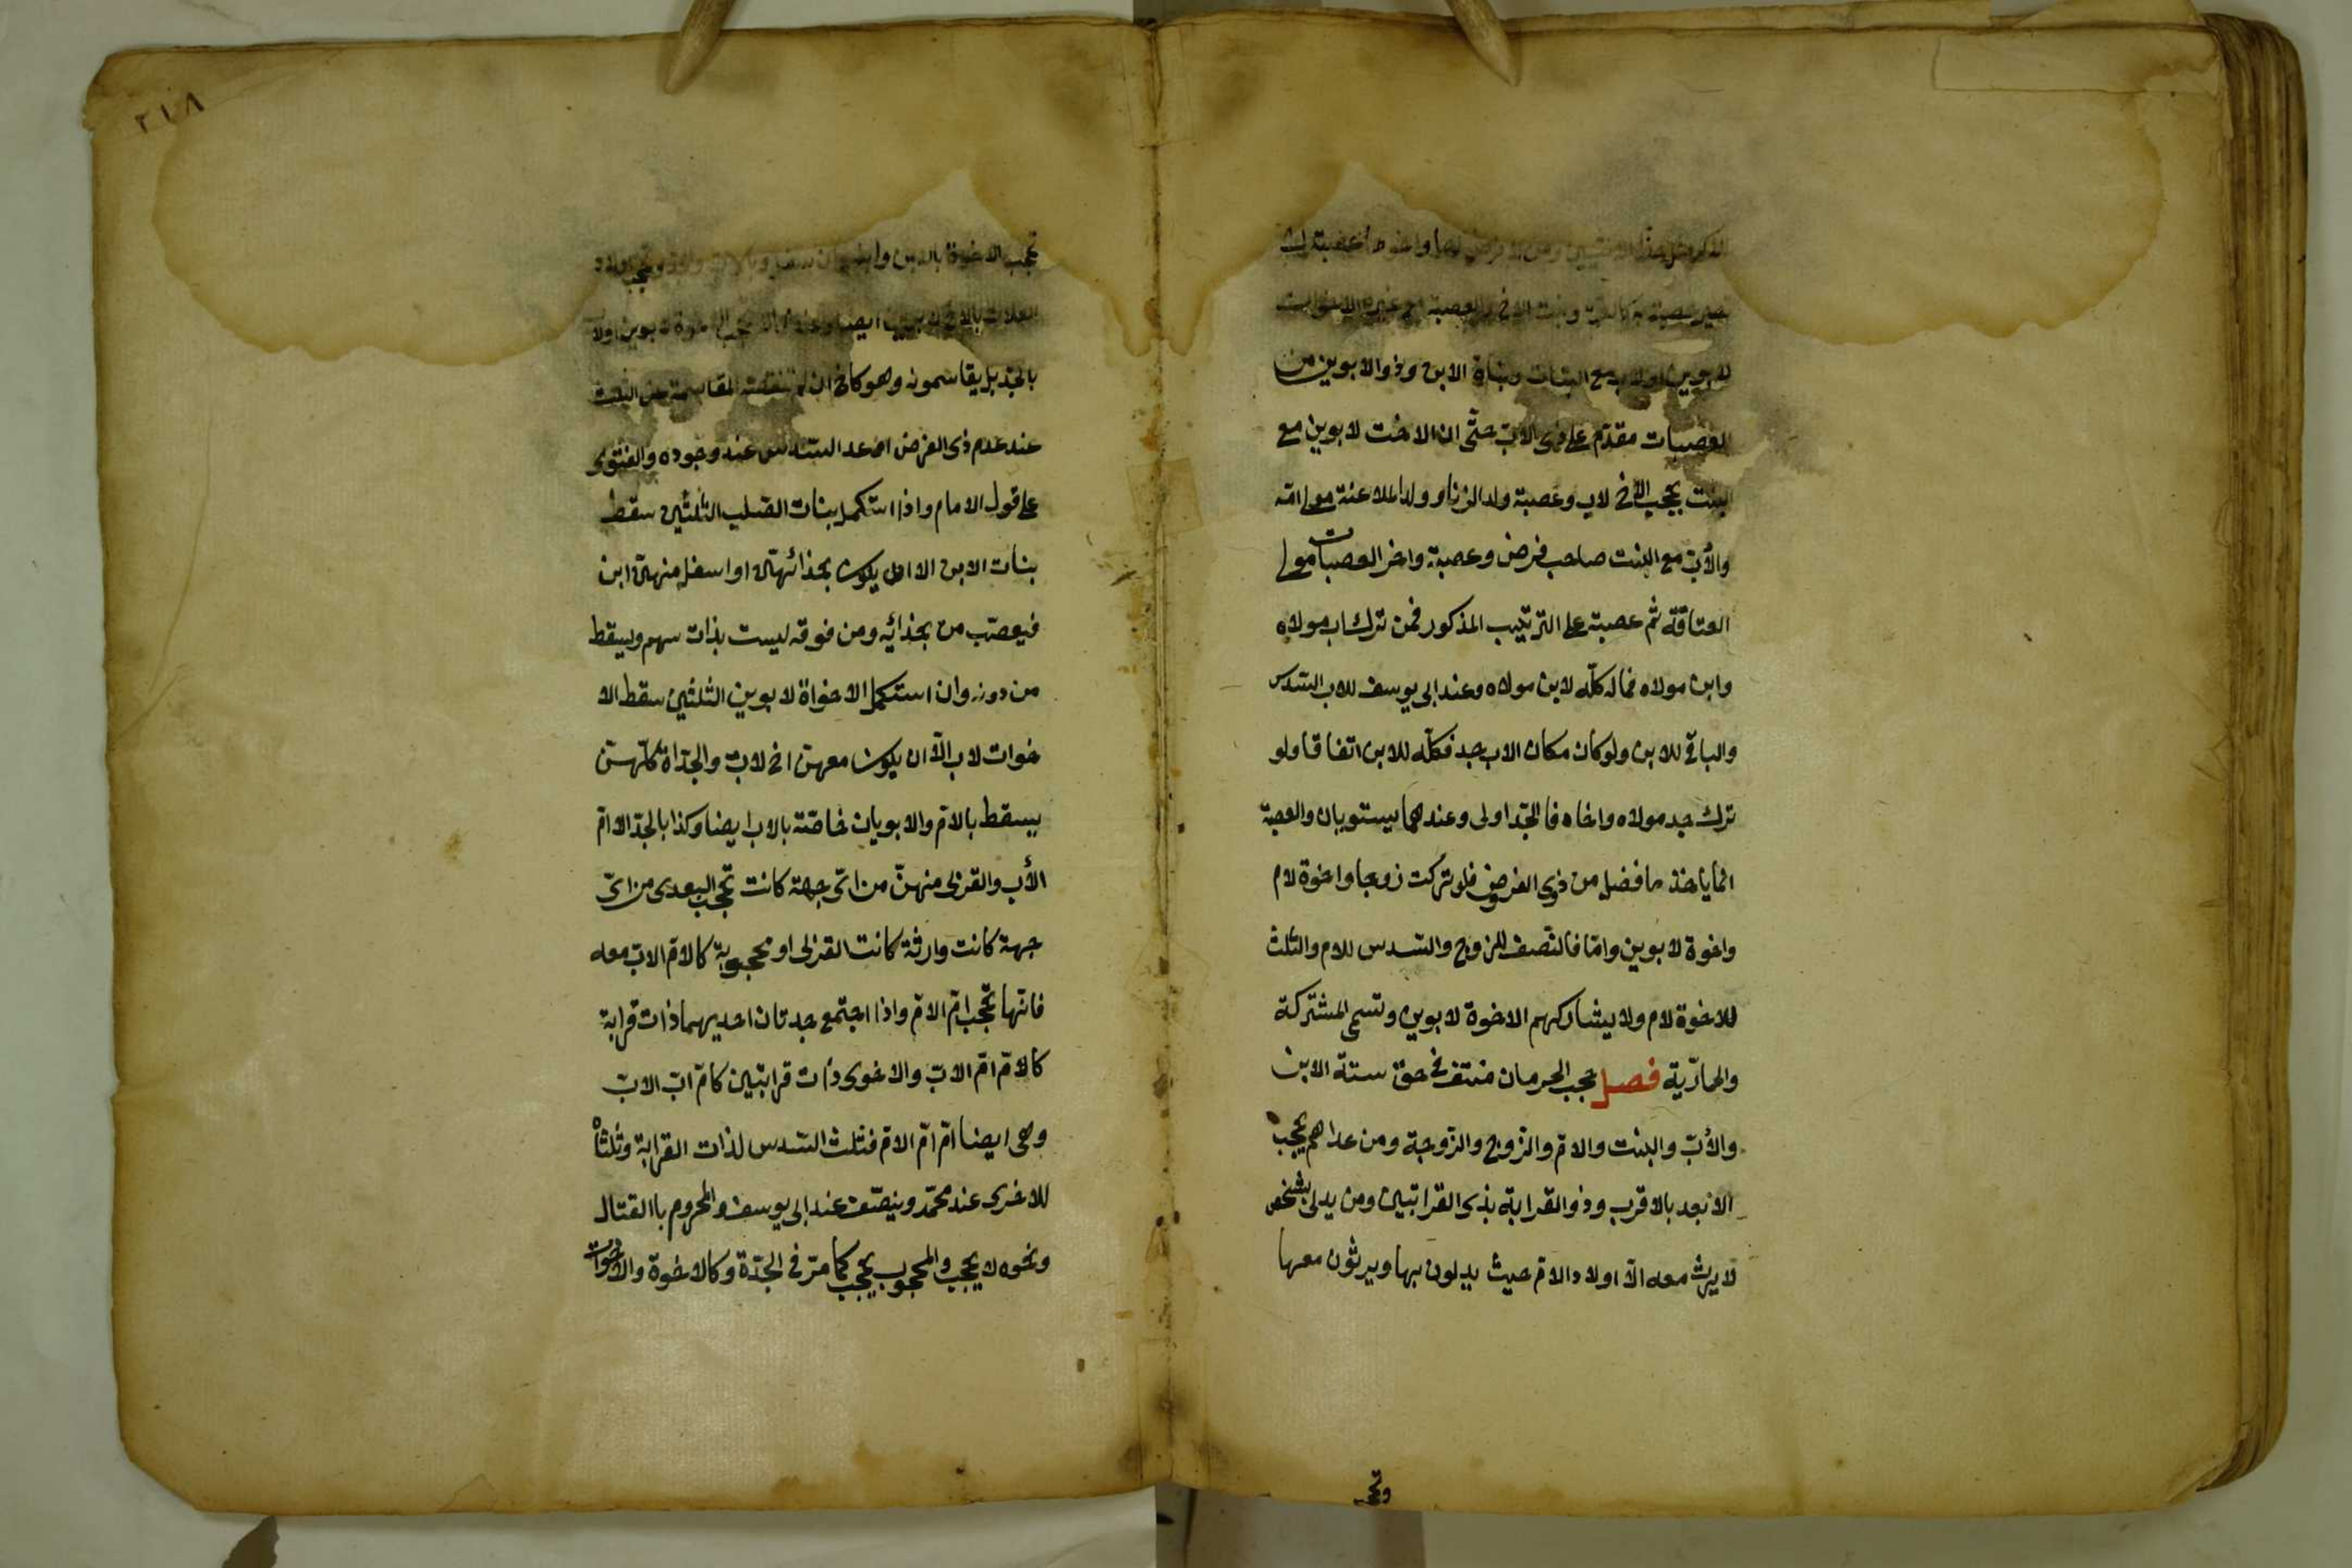 للابوين او لاب مع البنات وبناة الابن وذو الابوين من
العصبات مقدّم على ذى الابّ حتّى ان الاخت لابوين مع
البنت يحجب الاخ لاب وعصبة ولد الزنا و ولد الملاعنة مولى امّه
والأبّ مع البنت صاحب فرض وعصبة واخر العصبات مولى
العتاقة ثم عصبته على الترتيب المذكور فمن ترك اب مولاه
وابن مولاه فماله كلّه لابن مولاه وعند ابى يوسف للاب السّدس
والباقى للابن ولو كان مكان الاب جد فكلّه للابن اتفاقا ولو
ترك جد مولاه واخاه فالجدّ اولى وعندهما يستويان والعصبة
انما ياخذ ما فضل من ذوى الفروض فلو تركت زوجا واخوة لام
واخوة لابوين وامّا فالنّصف للزوج والسّدس للام والثلث
للاخوة لام ولا يشاركهم الاخوة لابوين وتسمى المشتركة
والحماريّة فصل حجب الحرمان منتف فى حق ستة الابن
والأبّ والبنت والامّ والزوج والزوجة ومن عداهم يحجب
الابعد بالاقرب وذو القرابة بذى القرابتين ومن يدلى بشخص
لا يرث معه الّا اولاد الامّ حيث يدلون بها ويرثون معها
وتحجب
٢١٨
تحجب الاخوة بالابن وابنه وان سفل وبالاب والجد وتحجب اولاد
العلات بالاخ لابوين ايضا وعندهما لا يحجب الاخوة لابوين او لاب
بالجدّ بل يقاسمونه وهو كاخ ان لم تنقصه المقاسمة عن الثلث
عند عدم ذى الفرض او عن السّدس عند وجوده والفتوى
على قول الامام واذا استكمل بنات الصّلب الثّلثين سقط
بنات الابن الا ان يكون بحذائهنّ او اسفل منهنّ ابن
فيعصّب من بحذائه ومن فوقه ليست بذات سهم ويسقط
من دونه وان استكمل الاخواة لابوين الثلثين سقط الا
خوات لاب الّا ان يكون معهنّ اخ لابّ والجدّاة كلّهنّ
يسقط بالامّ والابويان خاصّة بالاب ايضا وكذا بالجدّ الا امّ
الأب والقربى منهنّ من اىّ جهة كانت تحجب البعدى من اىّ
جهة كانت وارثة كانت القربى او محجوبة كالامّ الابّ معه
فانّها تحجب امّ الامّ واذا اجتمع جدتان احديهما ذات قرابة
كالامّ امّ الابّ والاخرى ذات قرابتين كامّ ابّ الابّ
وهى ايضا امّ امّ الامّ فثلث السّدس لذات القرابة وثلثاه
للاخرى عند محمّد وينصّف عند ابى يوسف والمحروم باالقتال
ونحوه لا يحجب والمحجوب يحجب كما مرّ فى الجدّة وكالاخوة والاخوات